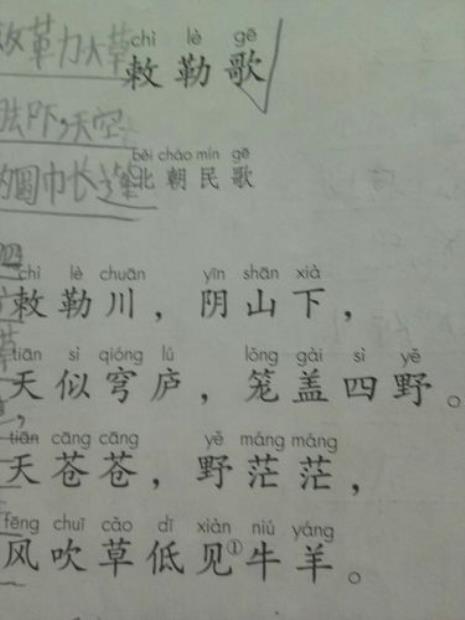 chì lè gē
敕勒歌
běi cháo mín gē
北朝民歌
chì lè chuān yīn shān xià
敕勒川，阴山下，
tiān sì qióng lú lǒng gài sì yě
天似穹庐，笼盖四野。
tiān cāng cāng yě máng máng
天苍苍，野茫茫，
fēng chuī cǎo dī xiàn niú yáng
风吹草低见①牛羊。